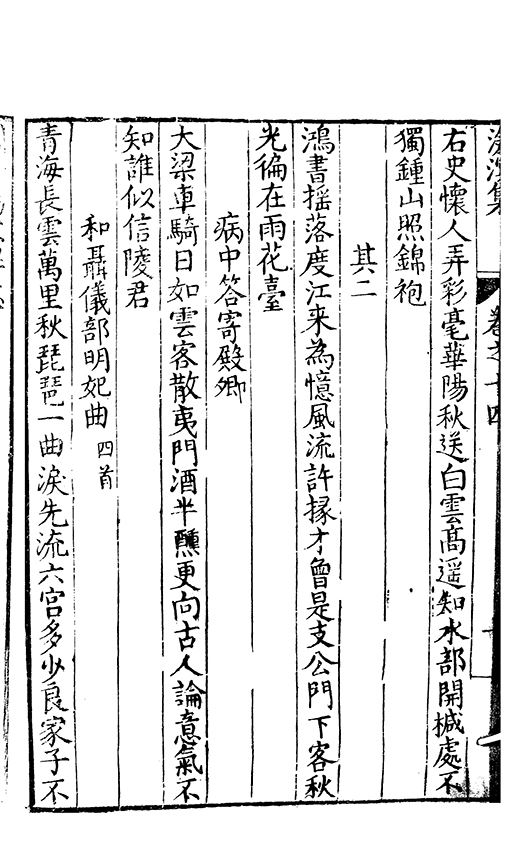 滄溟集 卷之十四
右史懷人弄彩毫華陽秋送白雲高遥知水部開椷處不
獨鍾山照錦袍
其二
鴻書揺落度江来為憶風流許掾才曾是支公門下客秋
光徧在雨花臺
病中答寄殿卿
大梁車騎日如雲客散夷門酒半醺更向古人論意氣不
知誰似信陵君
和聶儀部明妃曲 四首
青海長雲萬里秋琵琶一曲淚先流六宮多少良家子不